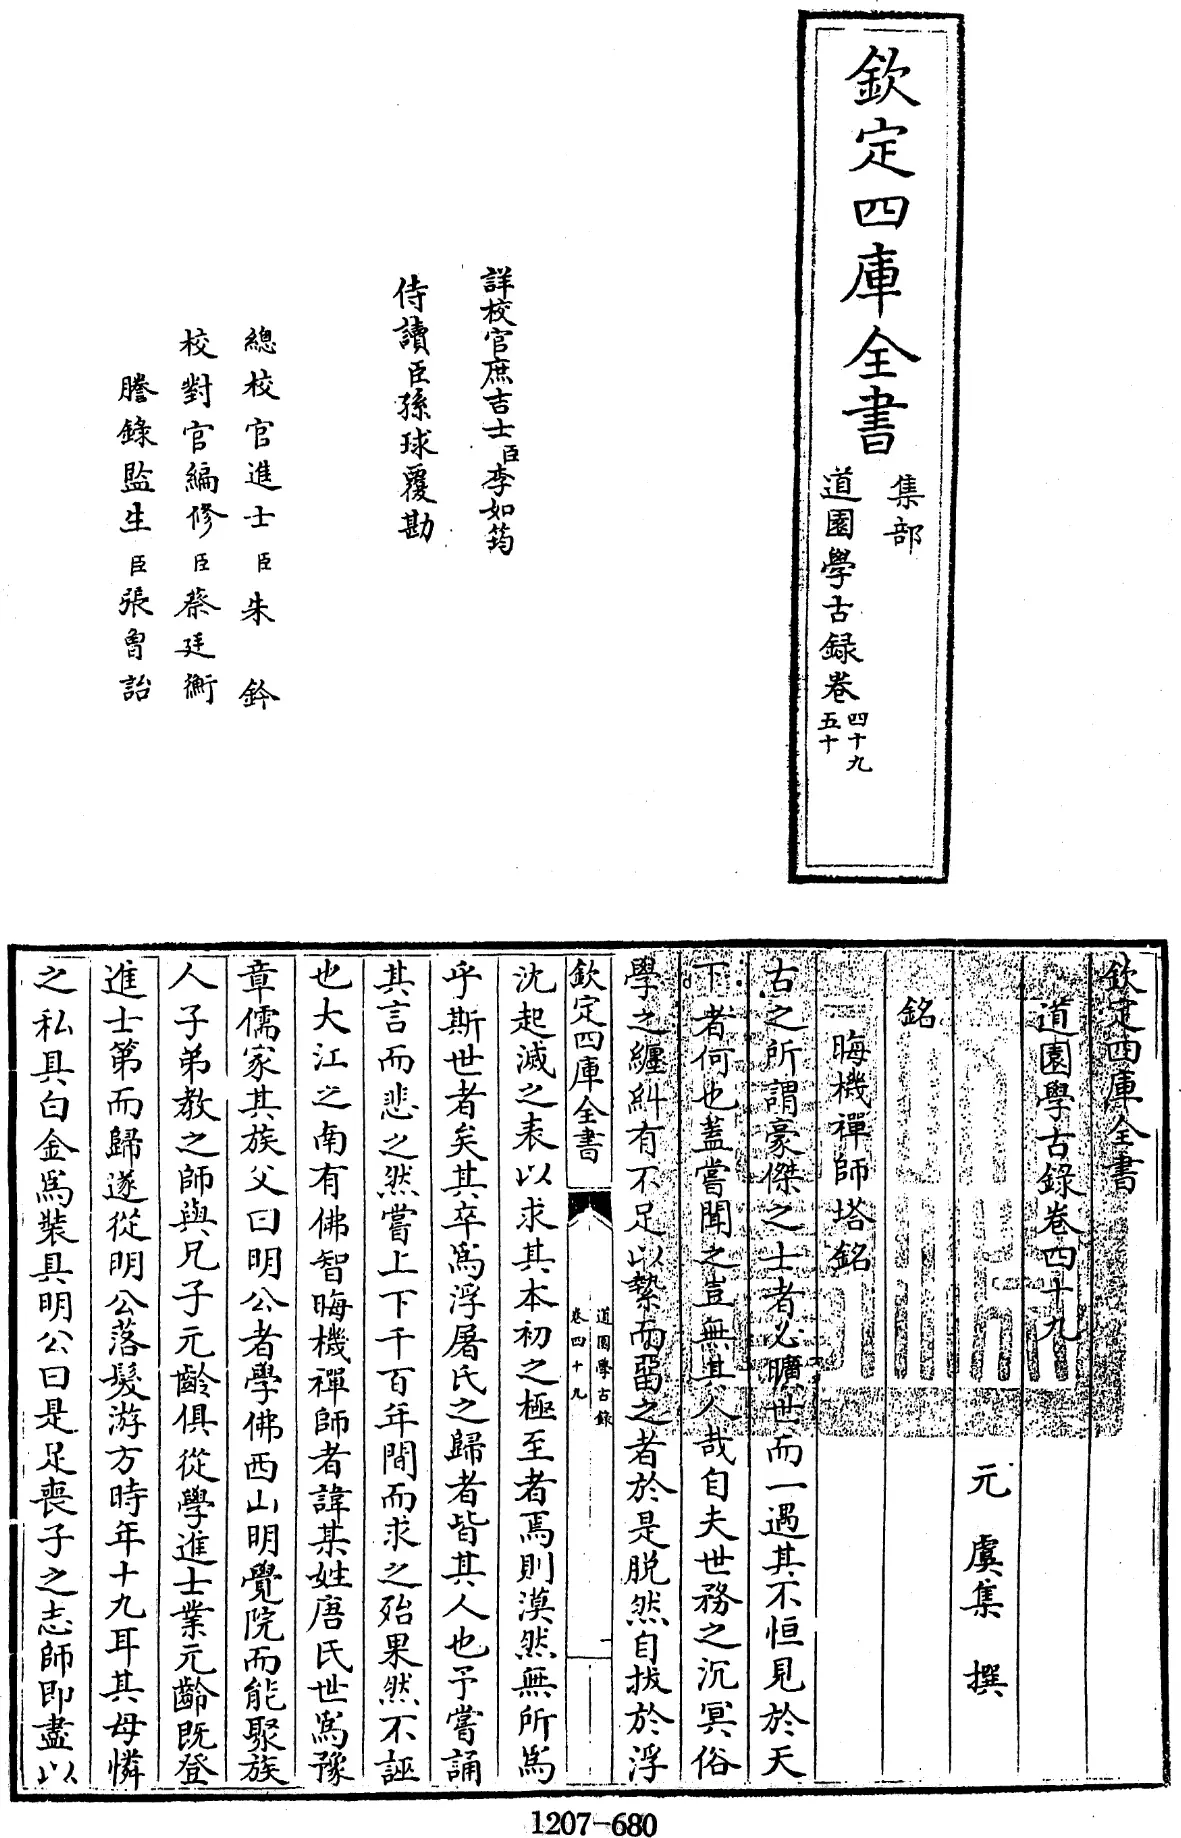 欽定四庫全書
集部
道園學古録卷
四十九
五十
詳校官庶吉士臣李如筠
侍讀臣孫球覆勘
總校官進士臣朱鈐
校對官編修臣蔡廷衡
謄錄監生臣張曾詒
欽定四庫全書
道園學古錄卷四十九
元 虞集 撰
銘
晦機禪師塔銘
古之所謂豪傑之士者必曠世而一遇其不恒見於天
下者何也蓋嘗聞之豈無其人哉自夫世務之沉冥俗
學之纏糾有不足以縶而罶之者於是脱然自拔於浮
欽定四庫全書
道園學古錄
卷四十九
一
沈起滅之表以求其本初之極至者焉則漠然無所爲
乎斯世者矣其卒爲浮屠氏之歸者皆其人也予嘗誦
其言而悲之然嘗上下千百年間而求之殆果然不誣
也大江之南有佛智晦機禪師者諱某姓唐氏世爲豫
章儒家其族父曰明公者學佛西山明覺院而能聚族
人子弟教之師與兄子元齡俱從學進士業元齡既登
進士第而歸遂從明公落髮游方時年十九耳其母憐
之私具白金爲裝具明公曰是足喪子之志師即盡以
1207-680